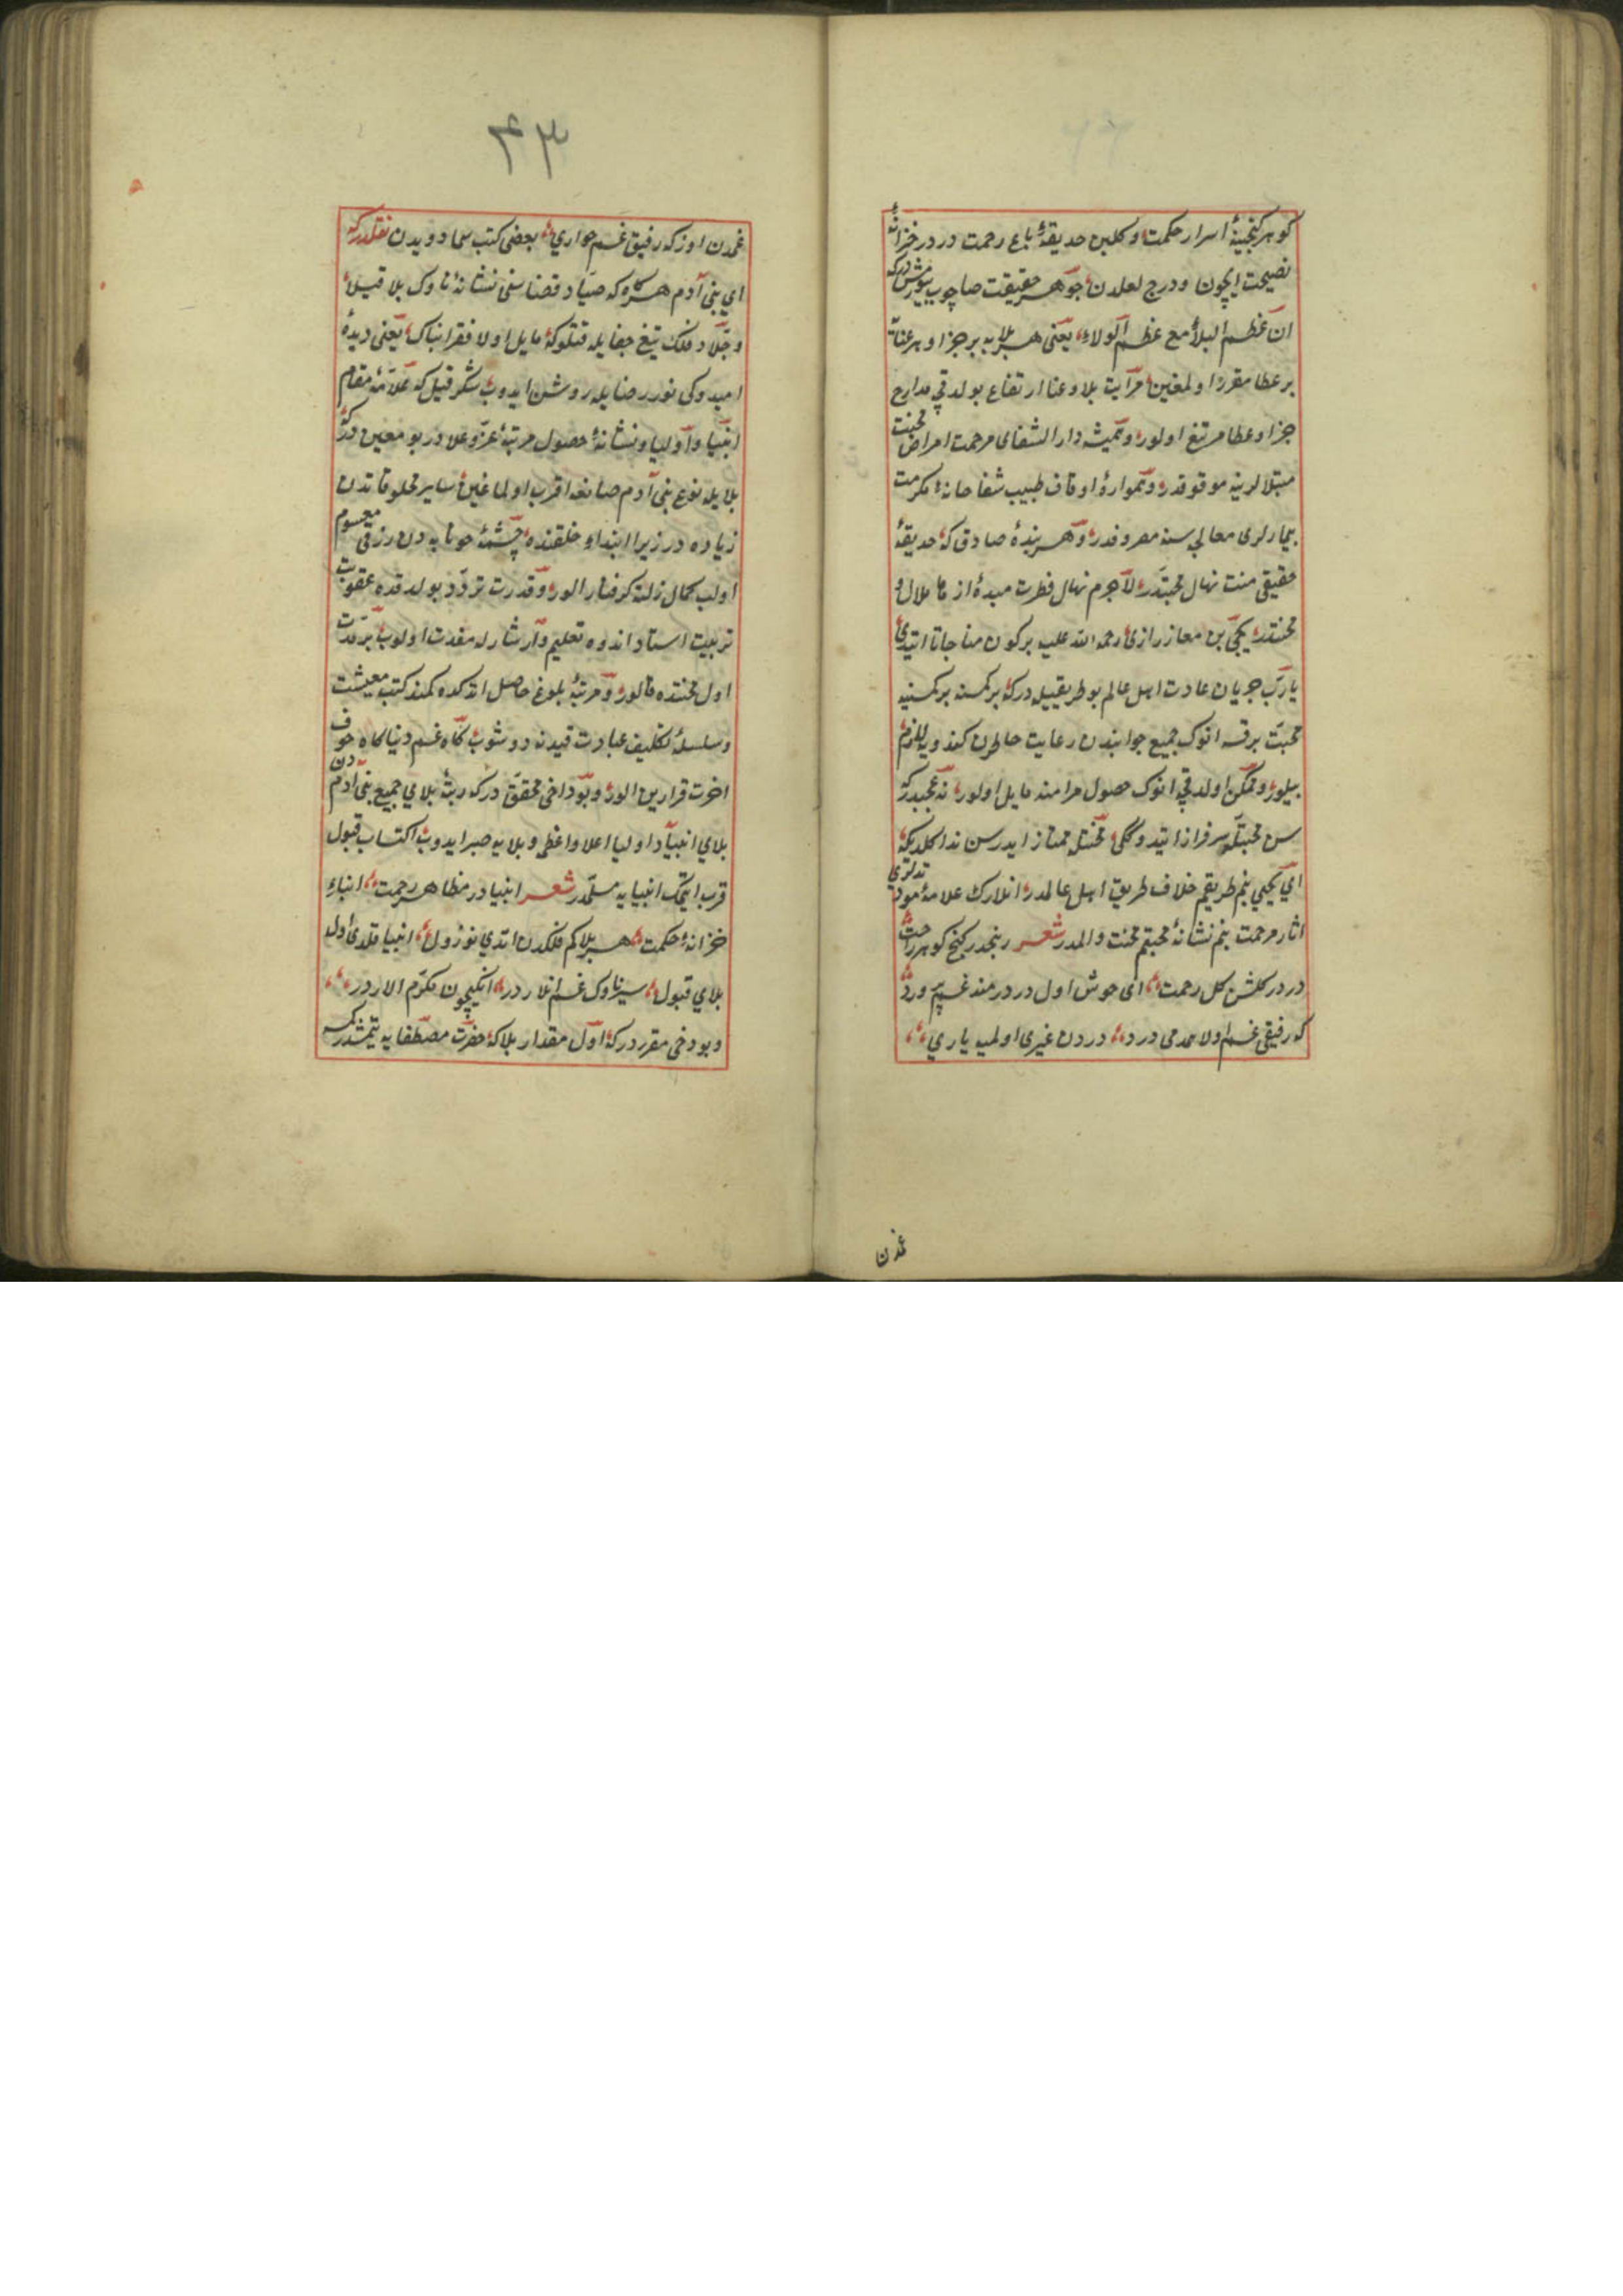 كوهر كنجينهٔ اسرار حكمت و كلبن حديقهٔ باغ رحمت در در خزانهٔ
نصيحت ايچون ودرج لعلدن جوهر حقيقت صاچوب بيورمش دركه
ان عظم البلاء مع عظم الولاء يعنى هر بلايه بر جزا و هر عنايه
بر عطا مقرر اولمغين مرآيت بلا وعنا ارتفاع بولدقچه مدارج
جزا وعطا مرتفع اولور وهميشه دار الشفاى مرحمت امراض محنت
مبتلالرينه موقوفدر وهمواره اوقاف طبيب شفاخانهٔ مكرمت
بيمارلرى معالجه سنه مصروفدر وهر بندهٔ صادق كه حديقهٔ
حقيقى منت نهال محبتدر لاجرم نهال فطرت ميوهٔ از ما ملال و
محنتدر يحيى بن معاز رازى رحمه الله عليه بر كون مناجات ايتدى
يارب جريان عادت اهل عالم بو طريقيله دركه بر كمسنه بر كمسنيه
محبت برقسه انوك جميع جوانبدن رعايت خاطرن كندويه لازم
بيلور وممكن اولدقچه انوك حصول مرامنه مايل اولور نه عجبدركه
سن محبتله سرفراز ايتدوككى محنتله ممتاز ايدرسن ندا كلديكه
اى يحيى بنم طريقم خلاف طريق اهل عالمدر انلارك علامهٔ مودتلرى
اثار مرحمت بنم نشانهٔ محبتم محنت والمدر شعر رنجدر كنج كوهر راحت
درد در كلشن كل رحمت اى خوش اول دردمند غم پرورد
كه رفيقى غم اولا همدمى درد دردن غيرى اولميه يارى
غمدن
٤٣
غمدن اوزكه رفيق غمخوارى بعضى كتب سماويدن نقلدركه
اى بنى آدم هر كاه كه صياد قضا سنى نشانهٔ ناوك بلا قيله
وجلاد فلك تيغ جفايله قتلوكه مايل اولا فقرا نباك يعنى ديدهٔ
اميدوكى نور رضايله روشن ايدوب شكر قيل كه علامهٔ مقام
انبيا واوليا ونشانهٔ حصول مرتبهٔ عز وعلا در بو معين در كه
بلايله نوع بنى آدم صانعه اقرب اولماغين ساير مخلوقاتدن
زياده در زيرا ابتداء خلقنده چشمهٔ خونابه دن رزقى مقسوم
اولب كمال زلته كرفتار الور وقدرت تردد بولدقده عقوبت
تربيت استاد اندوه تعليم وارشادله مقدت اولوب بر مدت
اول محنتده قالور ومرتبهٔ بلوغ حاصل اتدكده كمند كتب معيشت
وسلسلهٔ تكليف عبادت قيدنه دوشوب كاه غم دنيا كاه خوف
اخرت قرارين الور وبو داخى محقق دركه رتبهٔ بلاى جميع بنى آدمدن
بلاى انبيا واوليا اعلا واعظم وبلايه صبر ايدوب اكتساب قبول
قرب ايتمك انبيايه مسلمدر شعر انبيادر مظاهر رحمت انباء
خزانهٔ حكمت هر بلا كم فلكدن اتدى نزول انبيا قلدى اول
بلاى قبول سيرناوك غم انلاردر انكيچون مكرم الاردر
وبو دخى مقرردركه اول مقدار بلا كه حضرت مصطفايه يتمشدر كمسه